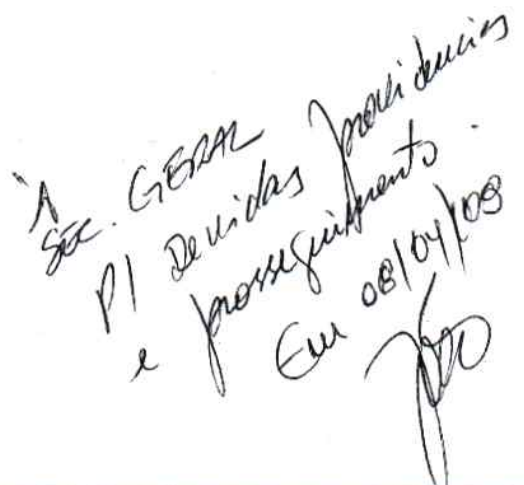 À
SEC. GERAL
P/ Devidas providencias
e prosseguimento.
Em 08/04/09